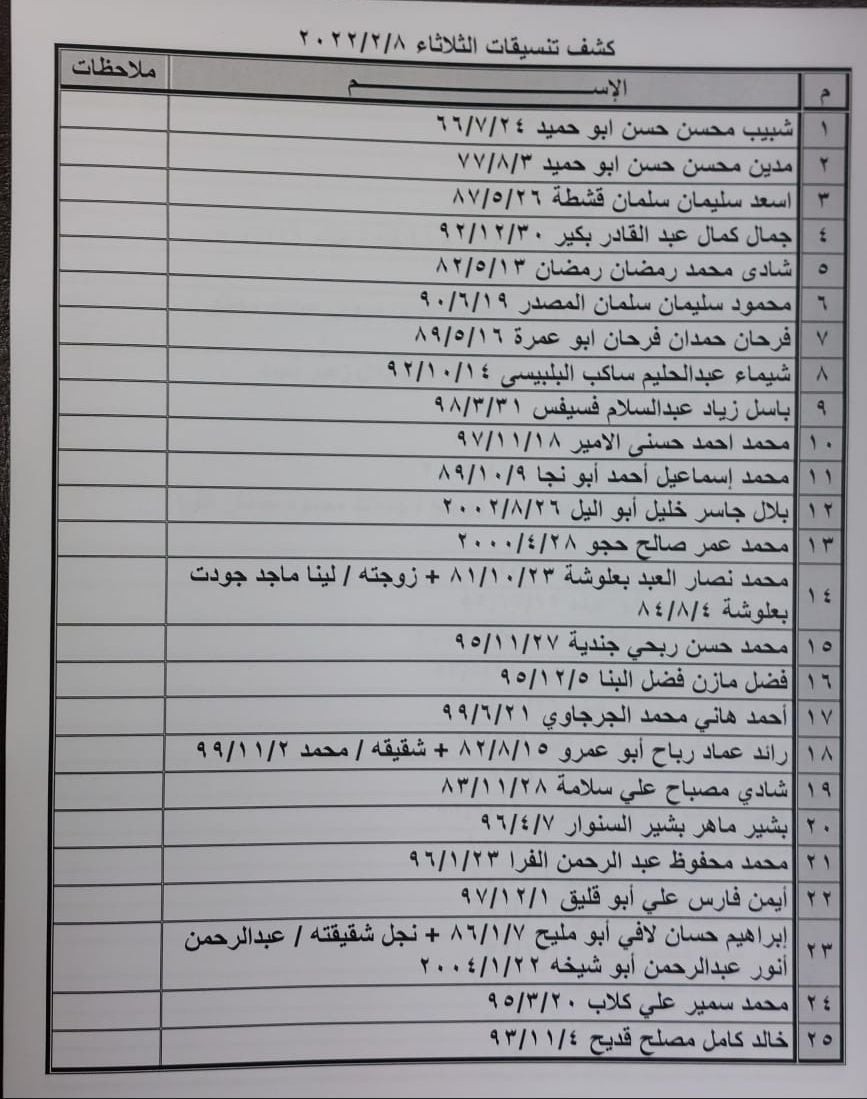 كشف تنسيقات الثلاثاء ٢٠٢٢/٢/٨
م الإســــــــم ملاحظات
١ شبيب محسن حسن ابو حميد ٦٦/٧/٢٤
٢ مدين محسن حسن ابو حميد ٧٧/٨/٣
٣ اسعد سليمان سلمان قشطة ٨٧/٥/٢٦
٤ جمال كمال عبد القادر بكير ٩٢/١٢/٣٠
٥ شادى محمد رمضان رمضان ٨٢/٥/١٣
٦ محمود سليمان سلمان المصدر ٩٠/٦/١٩
٧ فرحان حمدان فرحان ابو عمرة ٨٩/٥/١٦
٨ شيماء عبدالحليم ساكب البلبيسى ٩٢/١٠/١٤
٩ باسل زياد عبدالسلام فسيفس ٩٨/٣/٣١
١٠ محمد احمد حسنى الامير ٩٧/١١/١٨
١١ محمد إسماعيل أحمد أبو نجا ٨٩/١٠/٩
١٢ بلال جاسر خليل أبو اليل ٢٠٠٢/٨/٢٦
١٣ محمد عمر صالح حجو ٢٠٠٠/٤/٢٨
١٤ محمد نصار العبد بعلوشة ٨١/١٠/٢٣ + زوجته / لينا ماجد جودت
بعلوشة ٨٤/٨/٤
١٥ محمد حسن ربحي جندية ٩٥/١١/٢٧
١٦ فضل مازن فضل البنا ٩٥/١٢/٥
١٧ أحمد هاني محمد الجرجاوي ٩٩/٦/٢١
١٨ رائد عماد رباح أبو عمرو ٨٢/٨/١٥ + شقيقه / محمد ٩٩/١١/٢
١٩ شادي مصباح علي سلامة ٨٣/١١/٢٨
٢٠ بشير ماهر بشير السنوار ٩٦/٤/٧
٢١ محمد محفوظ عبد الرحمن الفرا ٩٦/١/٢٣
٢٢ أيمن فارس علي أبو قليق ٩٧/١٢/١
٢٣ إبراهيم حسان لافي أبو مليح ٨٦/١/٧ + نجل شقيقته / عبدالرحمن
أنور عبدالرحمن أبو شيخه ٢٠٠٤/١/٢٢
٢٤ محمد سمير علي كلاب ٩٥/٣/٢٠
٢٥ خالد كامل مصلح قديح ٩٣/١١/٤